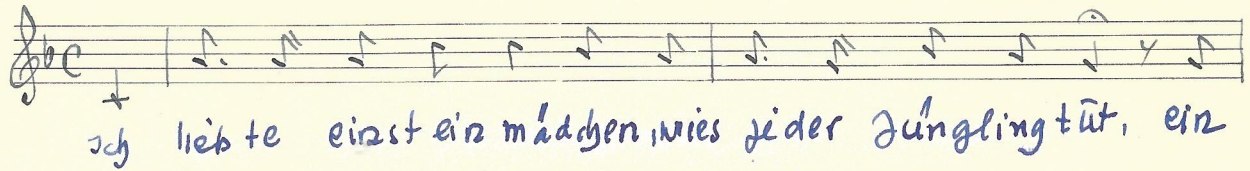 Ich liebte einst ein mädchen, wies jeder Jüngling tūt, ein